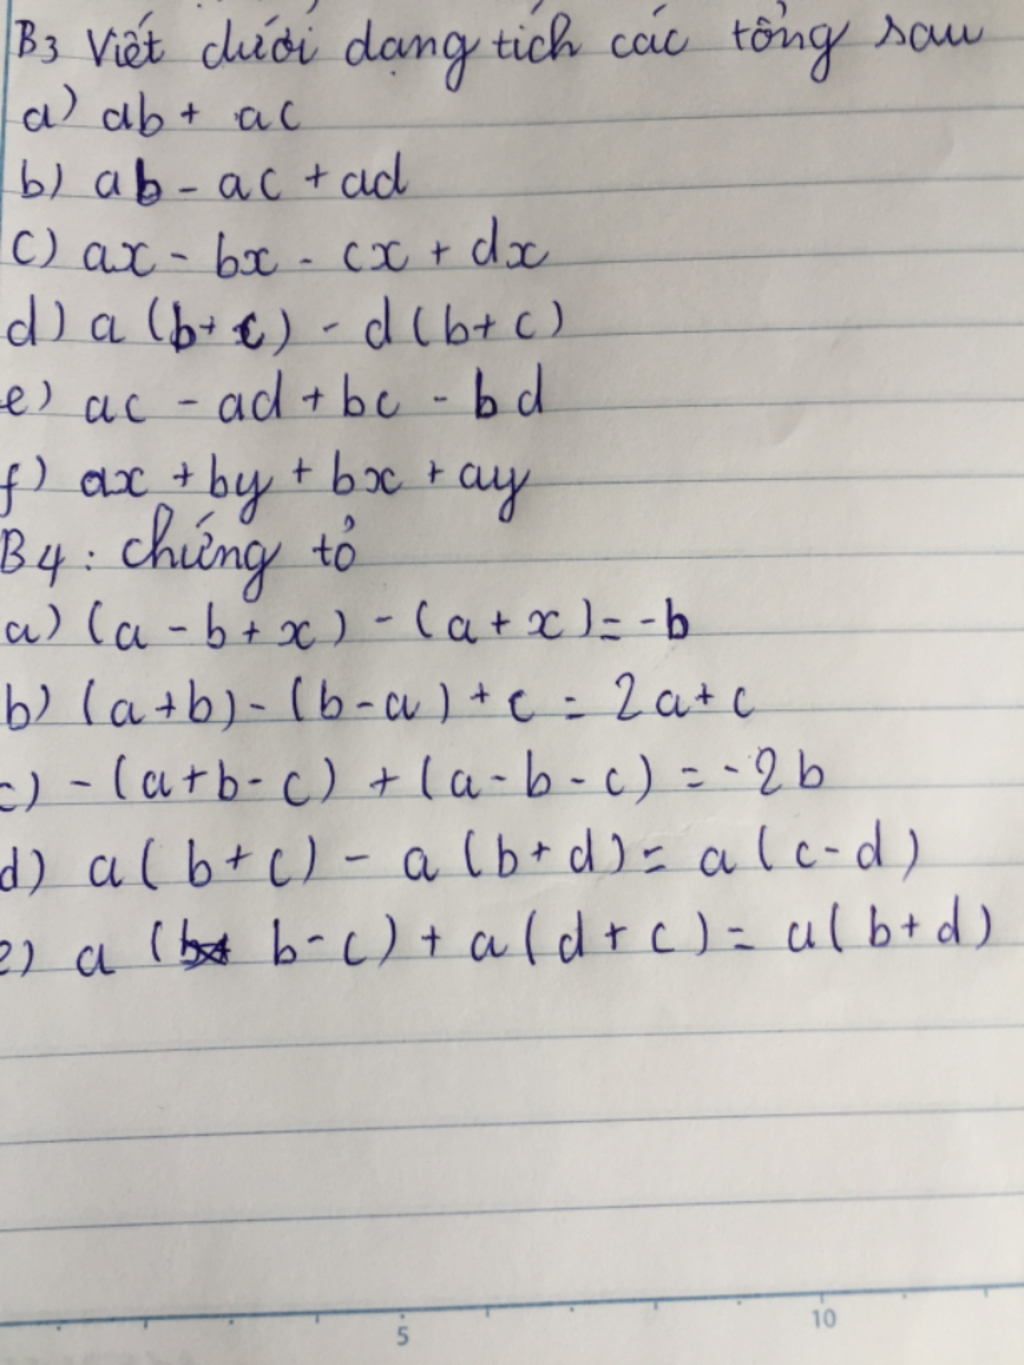 B3 Viết dưới dạng tích các tổng sau
a) ab + ac
b) ab - ac + ad
c) ax - bx - cx + dx
d) a (b+ c) - d (b+ c)
e) ac - ad + bc - bd
f) ax + by + bx + ay
B4 : chứng tỏ
a) (a - b + x) - (a + x) = -b
b) (a+b) - (b-a) + c = 2a+ c
c) - (a+b-c) + (a-b-c) = -2b
d) a( b+c) - a (b+d) = a (c-d)
e) a ( b-c) + a (d+c) = a( b+d)
5 10